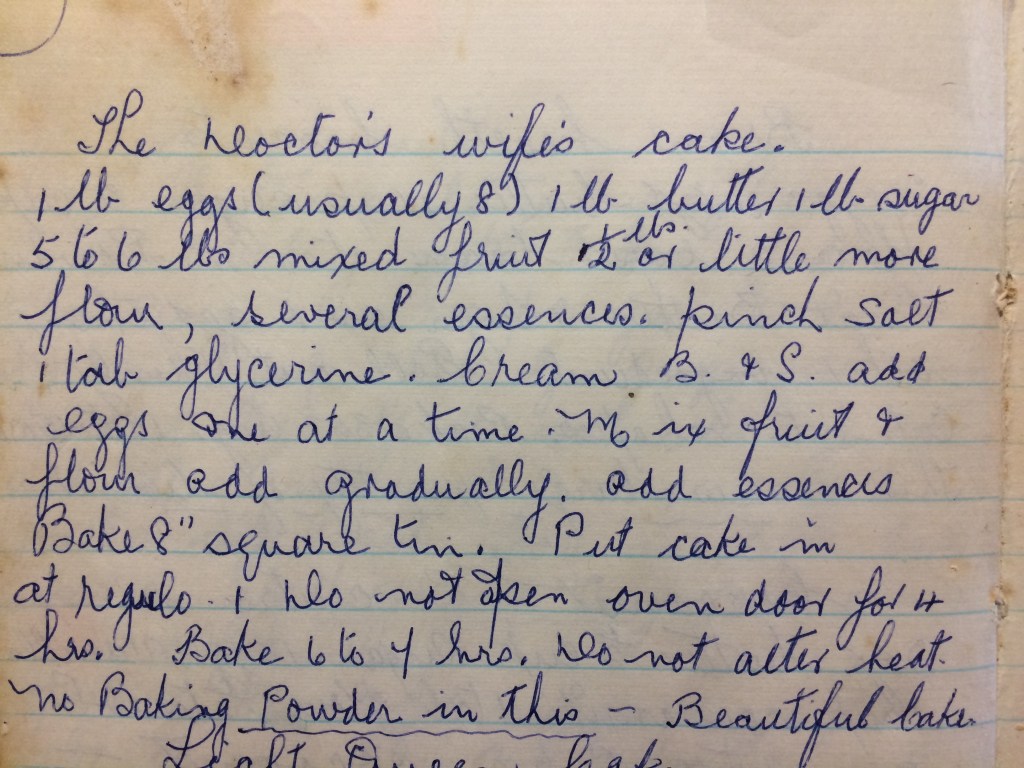 The Doctor's wife's cake.
1 lb eggs (usually 8) 1 lb butter 1 lb sugar
5 to 6 lbs mixed fruit 1½ lbs. or little more
flour, several essences. pinch Salt
1 tab glycerine. Cream B. & S. add
eggs one at a time. Mix fruit &
flour add gradually. add essences
Bake 8" square tin. Put cake in
at regulo. 1 Do not open oven door for 4
hrs. Bake 6 to 7 hrs. Do not alter heat.
No Baking Powder in this – Beautiful Cake.
Light Queen Cake